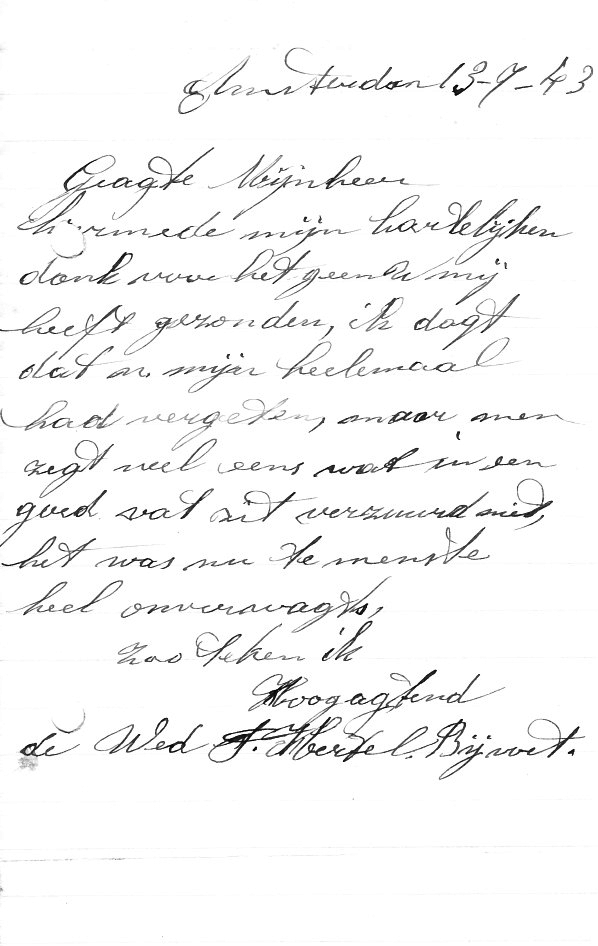 Amsterdam 13-7-43
Geagte Mijnheer
hiermede mijn hartelijken
dank voor het geen U mij
heeft gezonden, ik dagt
dat u mijn heelemaal
had vergeten, maar men
zegt wel eens wat in een
goed vat zit verzuurd niet,
het was nu te menste
heel onverwagts,
zoo teken ik
Hoogagtend
de Wed Bijvoet.